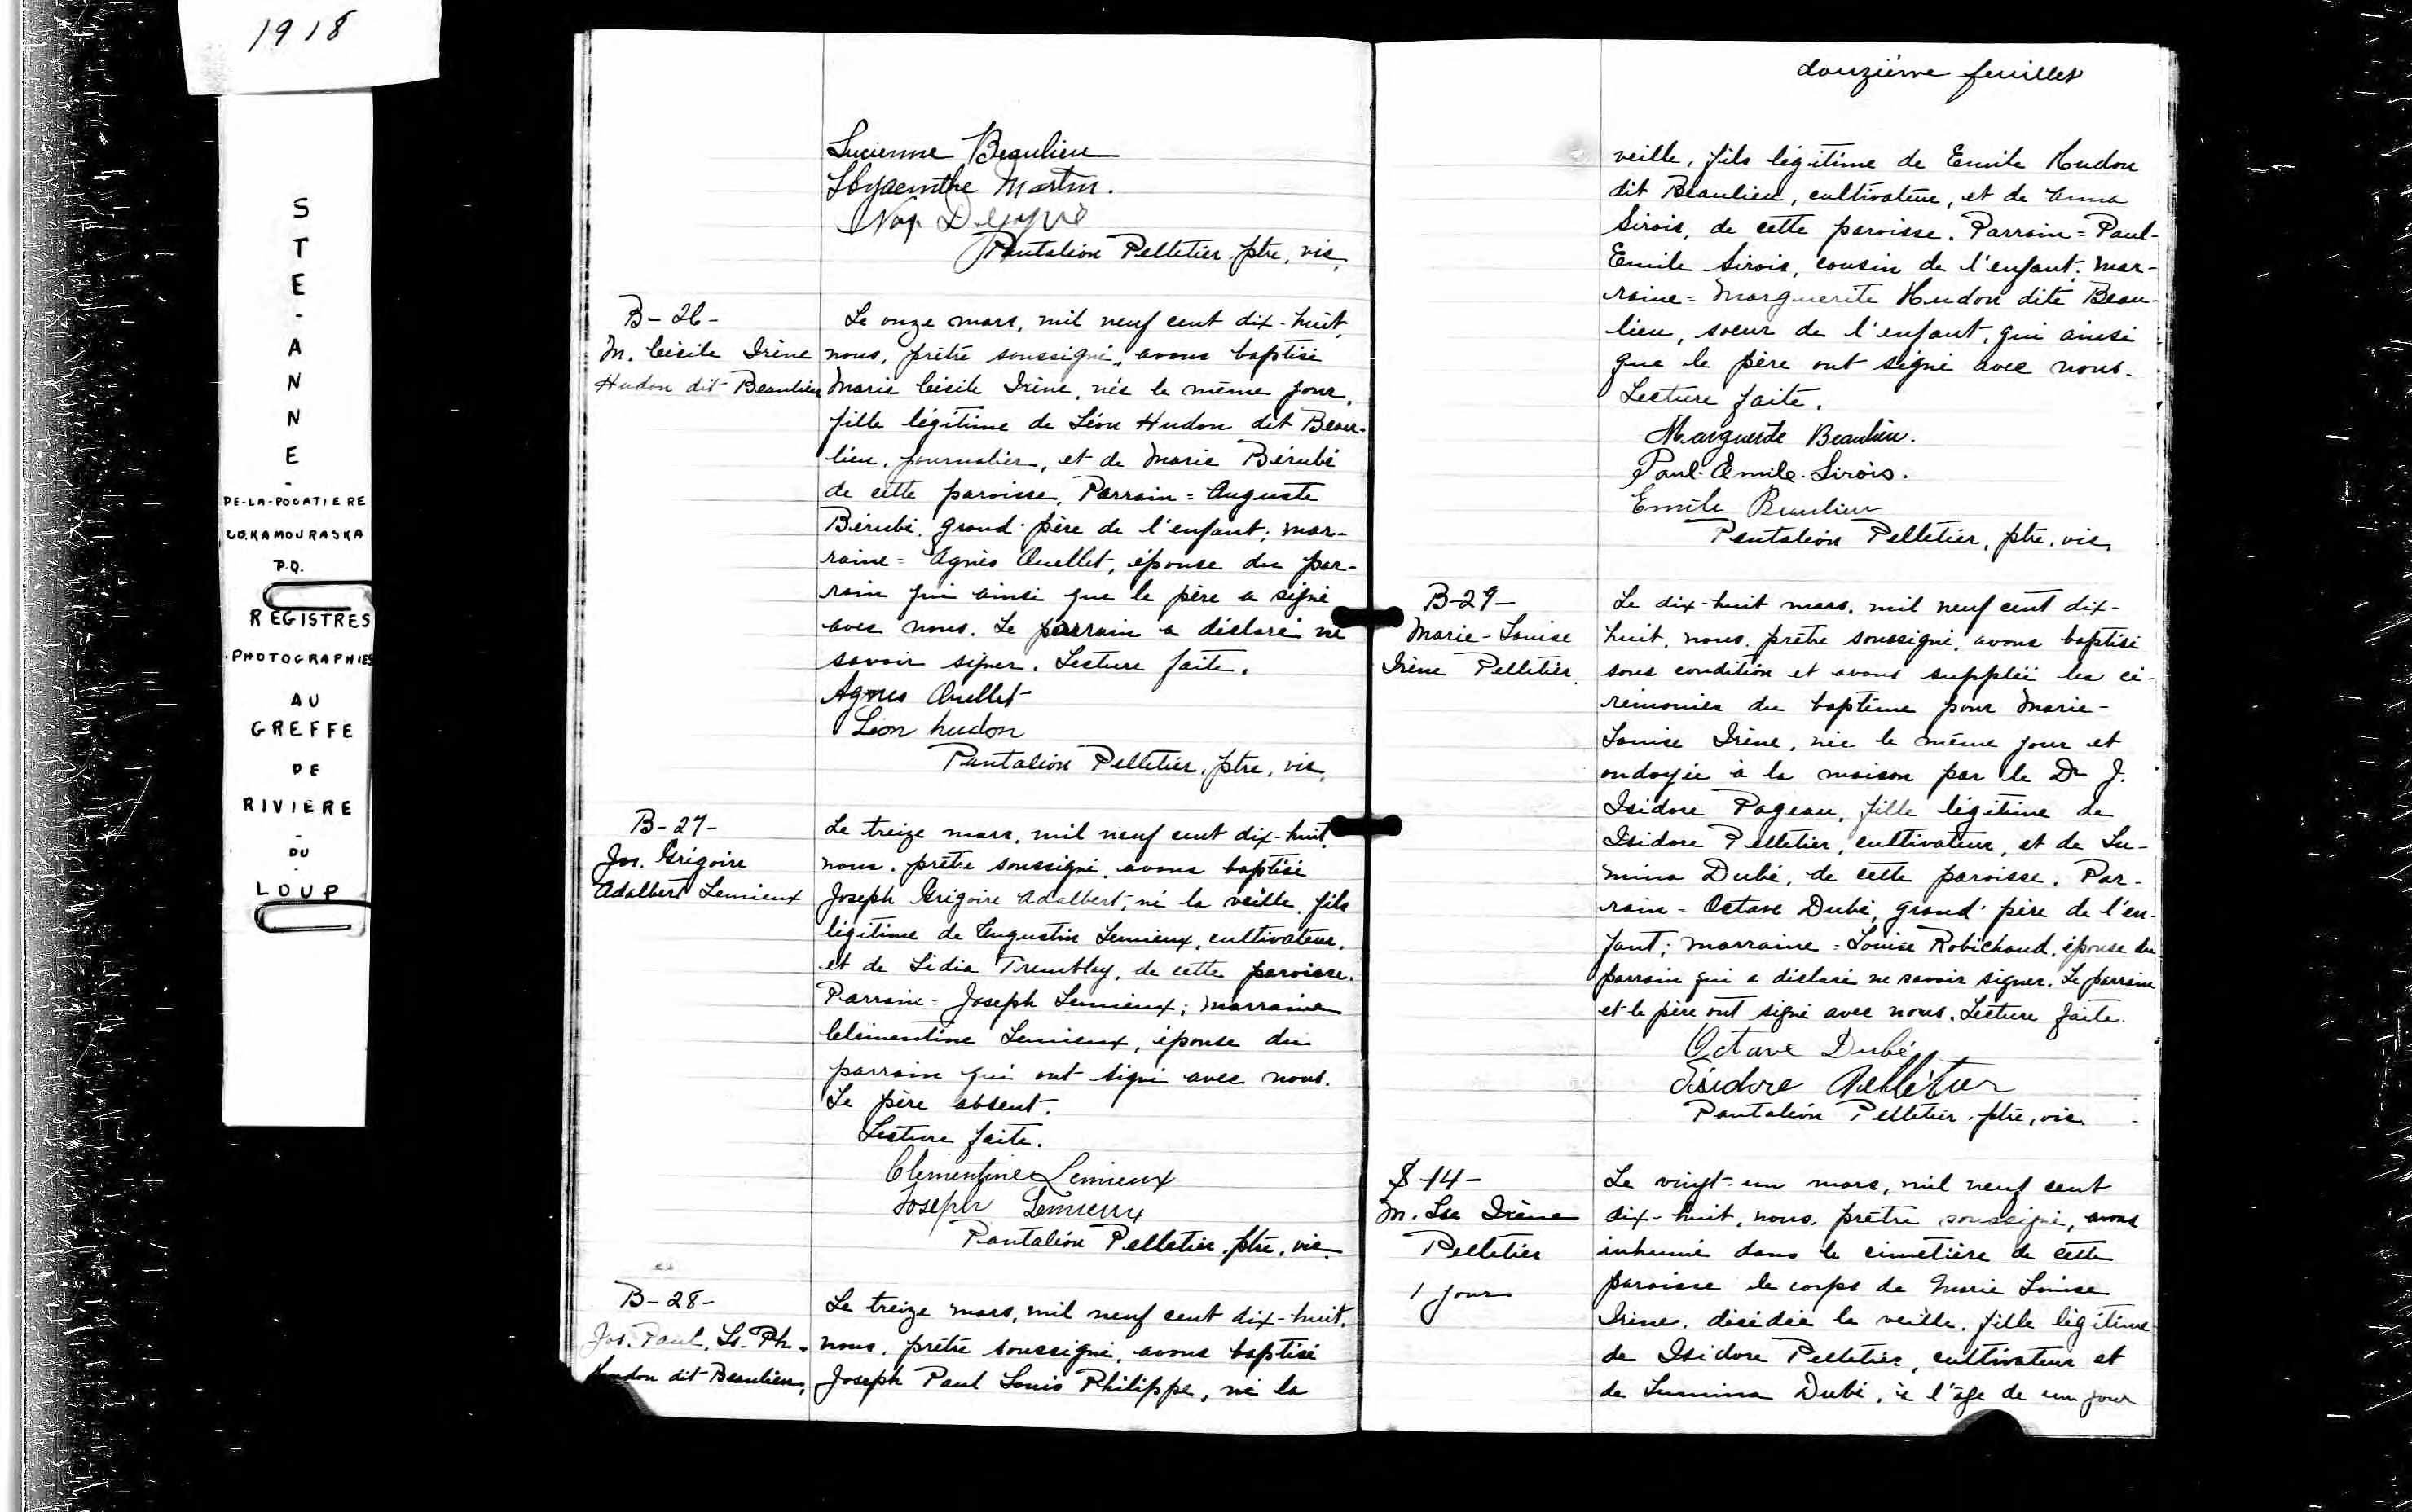 1918
S
T
E
-
A
N
N
E
-
DE-LA-POCATIERE
CO. KAMOURASKA
P.Q.
REGISTRES
PHOTOGRAPHIES
AU
GREFFE
DE
RIVIERE
-
DU
-
LOUP
Lucienne Beaulieu
Hyacinthe Martin.
Nap
Pantaléon Pelletier, ptre, vic.
B-26-
M. Cécile Irène
Hudon dit Beaulieu
Le onze mars, mil neuf cent dix-huit,
nous, prêtre soussigné, avons baptisé
Marie Cécile Irène, née le même jour,
fille légitime de Léon Hudon dit Beau-
lieu, journalier, et de Marie Bérubé
de cette paroisse. Parrain = Auguste
Bérubé, grand-père de l'enfant; mar-
raine = Agnès Ouellet, épouse du par-
rain qui ainsi que le père a signé
avec nous. Le parrain a déclaré ne
savoir signer. Lecture faite.
Agnes Ouellet
Léon hudon
Pantaléon Pelletier, ptre, vic.
B-27-
Jos. Grégoire
Adalbert Lemieux
Le treize mars, mil neuf cent dix-huit,
nous, prêtre soussigné, avons baptisé
Joseph Grégoire Adalbert, né la veille, fils
légitime de Augustin Lemieux, cultivateur,
et de Lidia Tremblay, de cette paroisse.
Parrain = Joseph Lemieux; marraine
Clémentine Lemieux, épouse du
parrain qui ont signé avec nous.
Le père absent.
Lecture faite.
Clementine Lemieux
Joseph Lemieux
Pantaléon Pelletier, ptre, vic.
B-28-
Jos. Paul, Ls. Ph.
Hudon dit Beaulieu,
Le treize mars, mil neuf cent dix-huit,
nous, prêtre soussigné, avons baptisé
Joseph Paul Louis Philippe, né la
douzième feuillet
veille, fils légitime de Emile Hudon
dit Beaulieu, cultivateur, et de Anna
Sirois, de cette paroisse. Parrain = Paul-
Emile Sirois, cousin de l'enfant; mar-
raine = Marguerite Hudon dite Beau-
lieu, soeur de l'enfant, qui ainsi
que le père ont signé avec nous.
Lecture faite.
Marguerite Beaulieu.
Paul-Emile Sirois.
Emile Beaulieu
Pantaléon Pelletier, ptre, vic.
B-29-
Marie-Louise
Irène Pelletier.
Le dix-huit mars, mil neuf cent dix-
huit, nous, prêtre soussigné, avons baptisé
sous condition et avons suppléé les cé-
rémonies du baptême pour Marie-
Louise Irène, née le même jour et
ondoyée à la maison par le Dr J.
Isidore Pageau, fille légitime de
Isidore Pelletier, cultivateur, et de Lu-
mina Dubé, de cette paroisse. Par-
rain = Octave Dubé, grand-père de l'en-
fant; marraine = Louise Robichaud, épouse du
parrain qui a déclaré ne savoir signer. Le parrain
et le père ont signé avec nous. Lecture faite.
Octave Dubé
Isidore Pelletier
Pantaléon Pelletier, ptre, vic.
S-14-
M. Lse Irène
Pelletier
1 jour
Le vingt-un mars, mil neuf cent
dix-huit, nous, prêtre soussigné, avons
inhumé dans le cimetière de cette
paroisse le corps de Marie Louise
Irène, décédée la veille, fille légitime
de Isidore Pelletier, cultivateur et
de Lumina Dubé, à l'âge de un jour